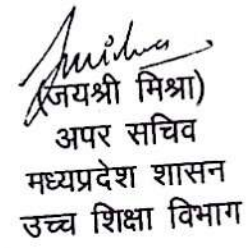 (जयश्री मिश्रा)
अपर सचिव
मध्यप्रदेश शासन
उच्च शिक्षा विभाग